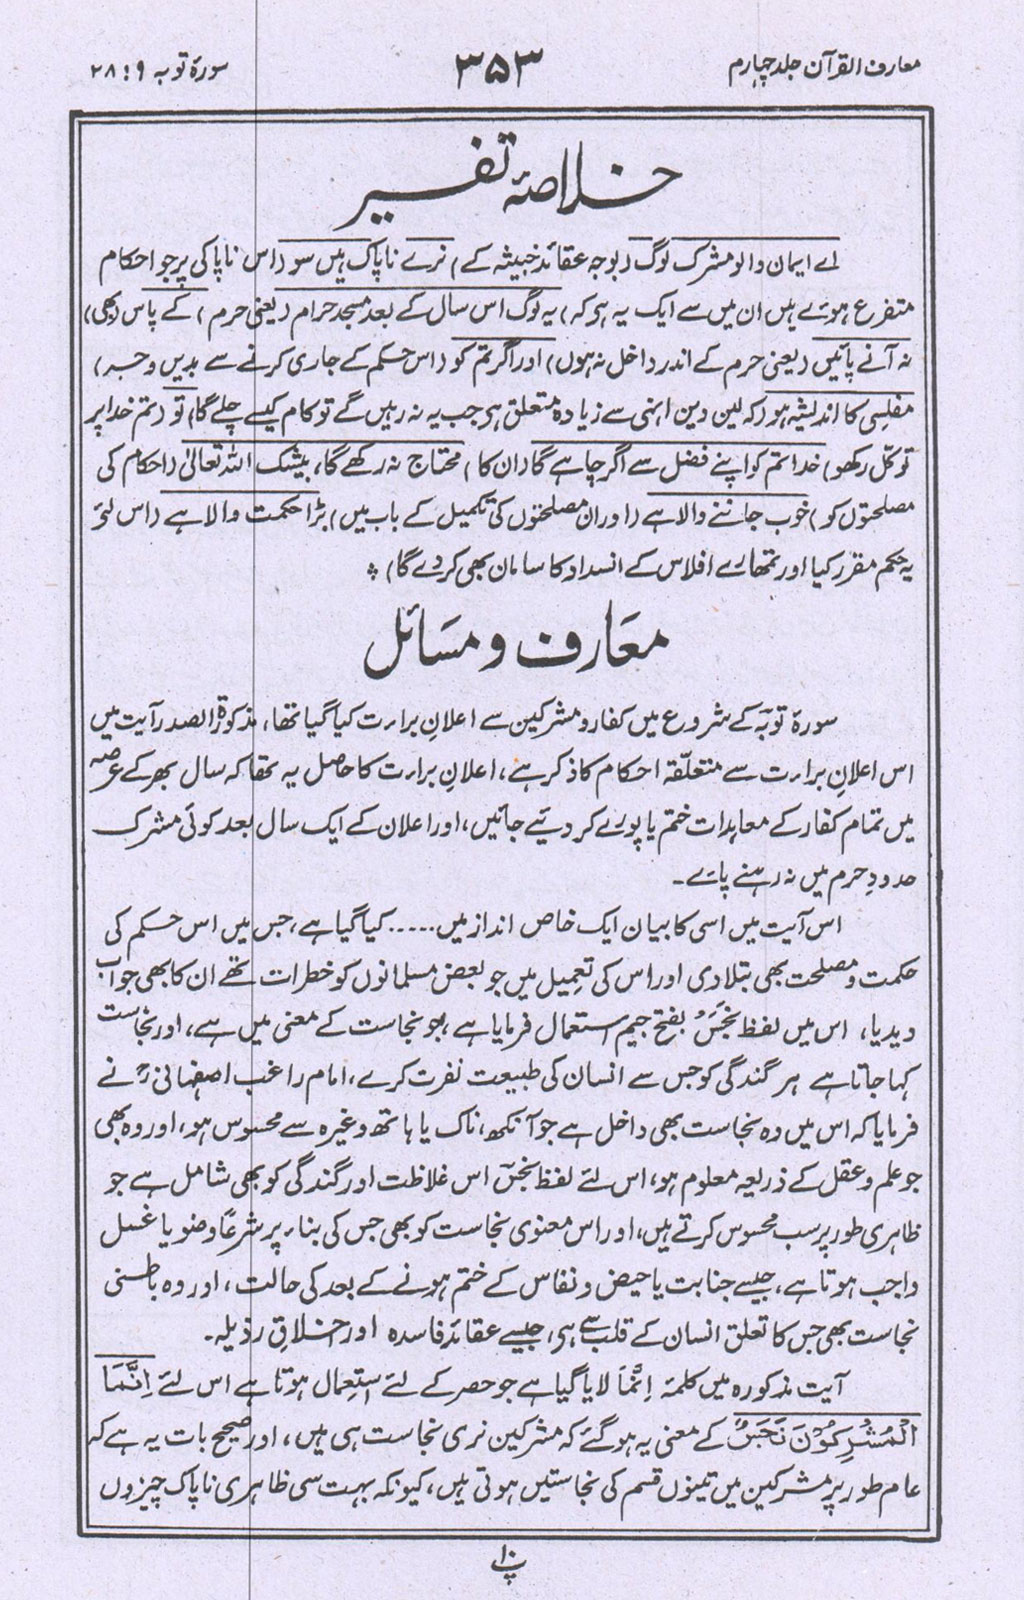 معارف القرآن جلد چہارم
۳۵۳
سورۂ توبہ ۹ : ۲۸
خلاصۂ تفسیر
اے ایمان والو مشرک لوگ (بوجہ عقائد خبیثہ کے) نرے ناپاک ہیں سو (اس ناپاکی پر جو احکام
متفرع ہوئے ہیں ان میں سے ایک یہ ہی کہ) یہ لوگ اس سال کے بعد مسجد حرام (یعنی حرم) کے پاس (بھی)
نہ آنے پائیں (یعنی حرم کے اندر داخل نہ ہوں) اور اگر تم کو (اس حکم کے جاری کرنے سے بدیں وجہ)
مفلسی کا اندیشہ ہو (کہ لین دین انہی سے زیادہ متعلق ہی جب یہ نہ رہیں گے تو کام کیسے چلے گا) تو (تم خدا پر
توکل رکھو) خدا تم کو اپنے فضل سے اگر چاہے گا (ان کا) محتاج نہ رکھے گا، بیشک اللہ تعالیٰ (احکام کی
مصلحتوں کو) خوب جاننے والا ہے (اور ان مصلحتوں کی تکمیل کے باب میں) بڑا حکمت والا ہے (اس لئے
یہ حکم مقرر کیا اور تمھارے افلاس کے انسداد کا سامان بھی کردے گا) ؞
معارف و مسائل
سورۂ توبہ کے شروع میں کفار و مشرکین سے اعلانِ برارت کیا گیا تھا، مذکورۃ الصدر آیت میں
اس اعلانِ برارت سے متعلّقہ احکام کا ذکر ہے، اعلانِ برارت کا حاصل یہ تھا کہ سال بھر کے عرصہ
میں تمام کفار کے معاہدات ختم یا پورے کردئیے جائیں، اور اعلان کے ایک سال بعد کوئی مشرک
حدودِ حرم میں نہ رہنے پائے۔
اس آیت میں اسی کا بیان ایک خاص انداز میں ..... کیا گیا ہے، جس میں اس حکم کی
حکمت و مصلحت بھی بتلا دی اور اس کی تعمیل میں جو بعض مسلمانوں کو خطرات تھے ان کا بھی جواب
دیدیا، اس میں لفظ نَجَسٌ بفتح جیم استعمال فرمایا ہے، جو نجاست کے معنی میں ہے، اور نجاست
کہا جاتا ہے ہر گندگی کو جس سے انسان کی طبیعت نفرت کرے، امام راغب اصفہانیؒ نے
فرمایا کہ اس میں وہ نجاست بھی داخل ہے جو آنکھ، ناک یا ہاتھ وغیرہ سے محسوس ہو، اور وہ بھی
جو علم و عقل کے ذریعہ معلوم ہو، اس لئے لفظ نجس اس غلاظت اور گندگی کو بھی شامل ہے جو
ظاہری طور پر سب محسوس کرتے ہیں، اور اس معنوی نجاست کو بھی جس کی بناء پر شرعًا وضو یا غسل
واجب ہوتا ہے، جیسے جنابت یا حیض و نفاس کے ختم ہونے کے بعد کی حالت، اور وہ باطنی
نجاست بھی جس کا تعلق انسان کے قلب سے ہی، جیسے عقائد فاسدہ اور اخلاقِ رذیلہ۔
آیت مذکورہ میں کلمۂ اِنَّمَا لایا گیا ہے جو حصر کے لئے استعمال ہوتا ہے اس لئے اِنَّمَا
الْمُشْرِكُوْنَ نَجَسٌ کے معنی یہ ہوگئے کہ مشرکین نری نجاست ہی ہیں، اور صحیح بات یہ ہے کہ
عام طور پر مشرکین میں تینوں قسم کی نجاستیں ہوتی ہیں، کیونکہ بہت سی ظاہری ناپاک چیزوں
پ۱۰